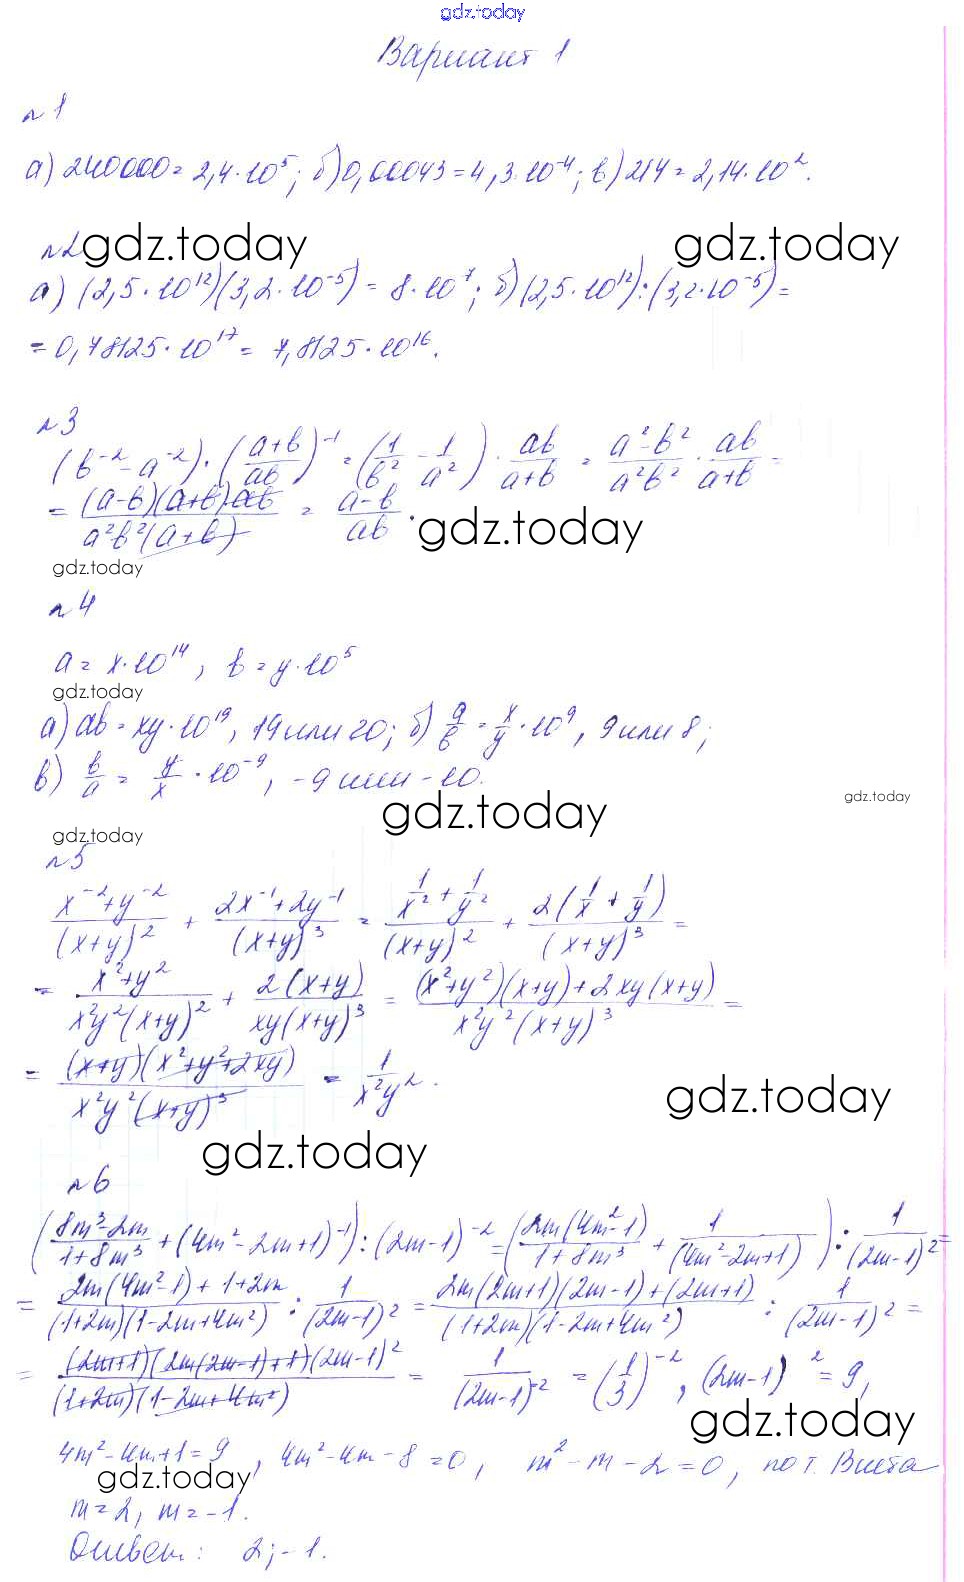 gdz.today
Вариант 1
№1
а) 240000 = 2,4·10⁵; б) 0,00043 = 4,3·10⁻⁴; в) 214 = 2,14·10².
№2 gdz.today gdz.today
а) (2,5·10¹²)(3,2·10⁻⁵) = 8·10⁷; б) (2,5·10¹²):(3,2·10⁻⁵) =
= 0,78125·10¹⁷ = 7,8125·10¹⁶.
№3
(b⁻² - a⁻²)·((a+b)/(ab))⁻¹ = (1/b² - 1/a²)·ab/(a+b) = (a²-b²)/(a²b²)·ab/(a+b) =
= (a-b)(a+b)ab/(a²b²(a+b)) = (a-b)/(ab). gdz.today
gdz.today
№4
a = x·10¹⁴, b = y·10⁵
gdz.today
а) ab = xy·10¹⁹, 19 или 20; б) a/b = x/y·10⁹, 9 или 8;
в) b/a = y/x·10⁻⁹, -9 или -10.
gdz.today gdz.today
gdz.today
№5
(x⁻²+y⁻²)/(x+y)² + (2x⁻¹+2y⁻¹)/(x+y)³ = (1/x² + 1/y²)/(x+y)² + 2(1/x + 1/y)/(x+y)³ =
= (x²+y²)/(x²y²(x+y)²) + 2(x+y)/(xy(x+y)³) = ((x²+y²)(x+y)+2xy(x+y))/(x²y²(x+y)³) =
= (x+y)(x²+y²+2xy)/(x²y²(x+y)³) = 1/(x²y²).
gdz.today
gdz.today
№6
((8m³-2m)/(1+8m³) + (4m²-2m+1)⁻¹):(2m-1)⁻² = (2m(4m²-1)/(1+8m³) + 1/(4m²-2m+1)) : 1/(2m-1)² =
= (2m(4m²-1)+1+2m)/((1+2m)(1-2m+4m²)) : 1/(2m-1)² = (2m(2m+1)(2m-1)+(2m+1))/((1+2m)(1-2m+4m²)) : 1/(2m-1)² =
= (2m+1)(2m(2m-1)+1)(2m-1)²/((1+2m)(1-2m+4m²)) = 1/(2m-1)⁻² = (1/3)⁻², (2m-1)² = 9,
gdz.today
4m²-4m+1=9, 4m²-4m-8=0, m²-m-2=0, по т. Виета
gdz.today
m=2, m=-1.
Ответ: 2; -1.